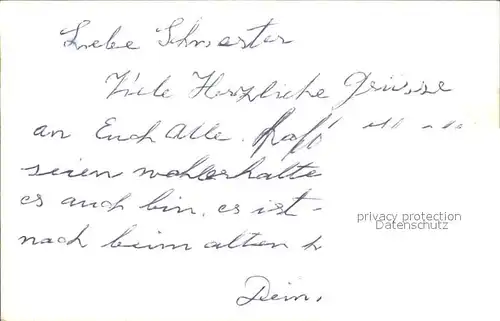 Liebe Schwester
Viele Herzliche Grüsse
an Euch Alle.
seien wohlerhalte
es auch bin, es ist -
noch beim alten
Dein,
privacy protection
Datenschutz